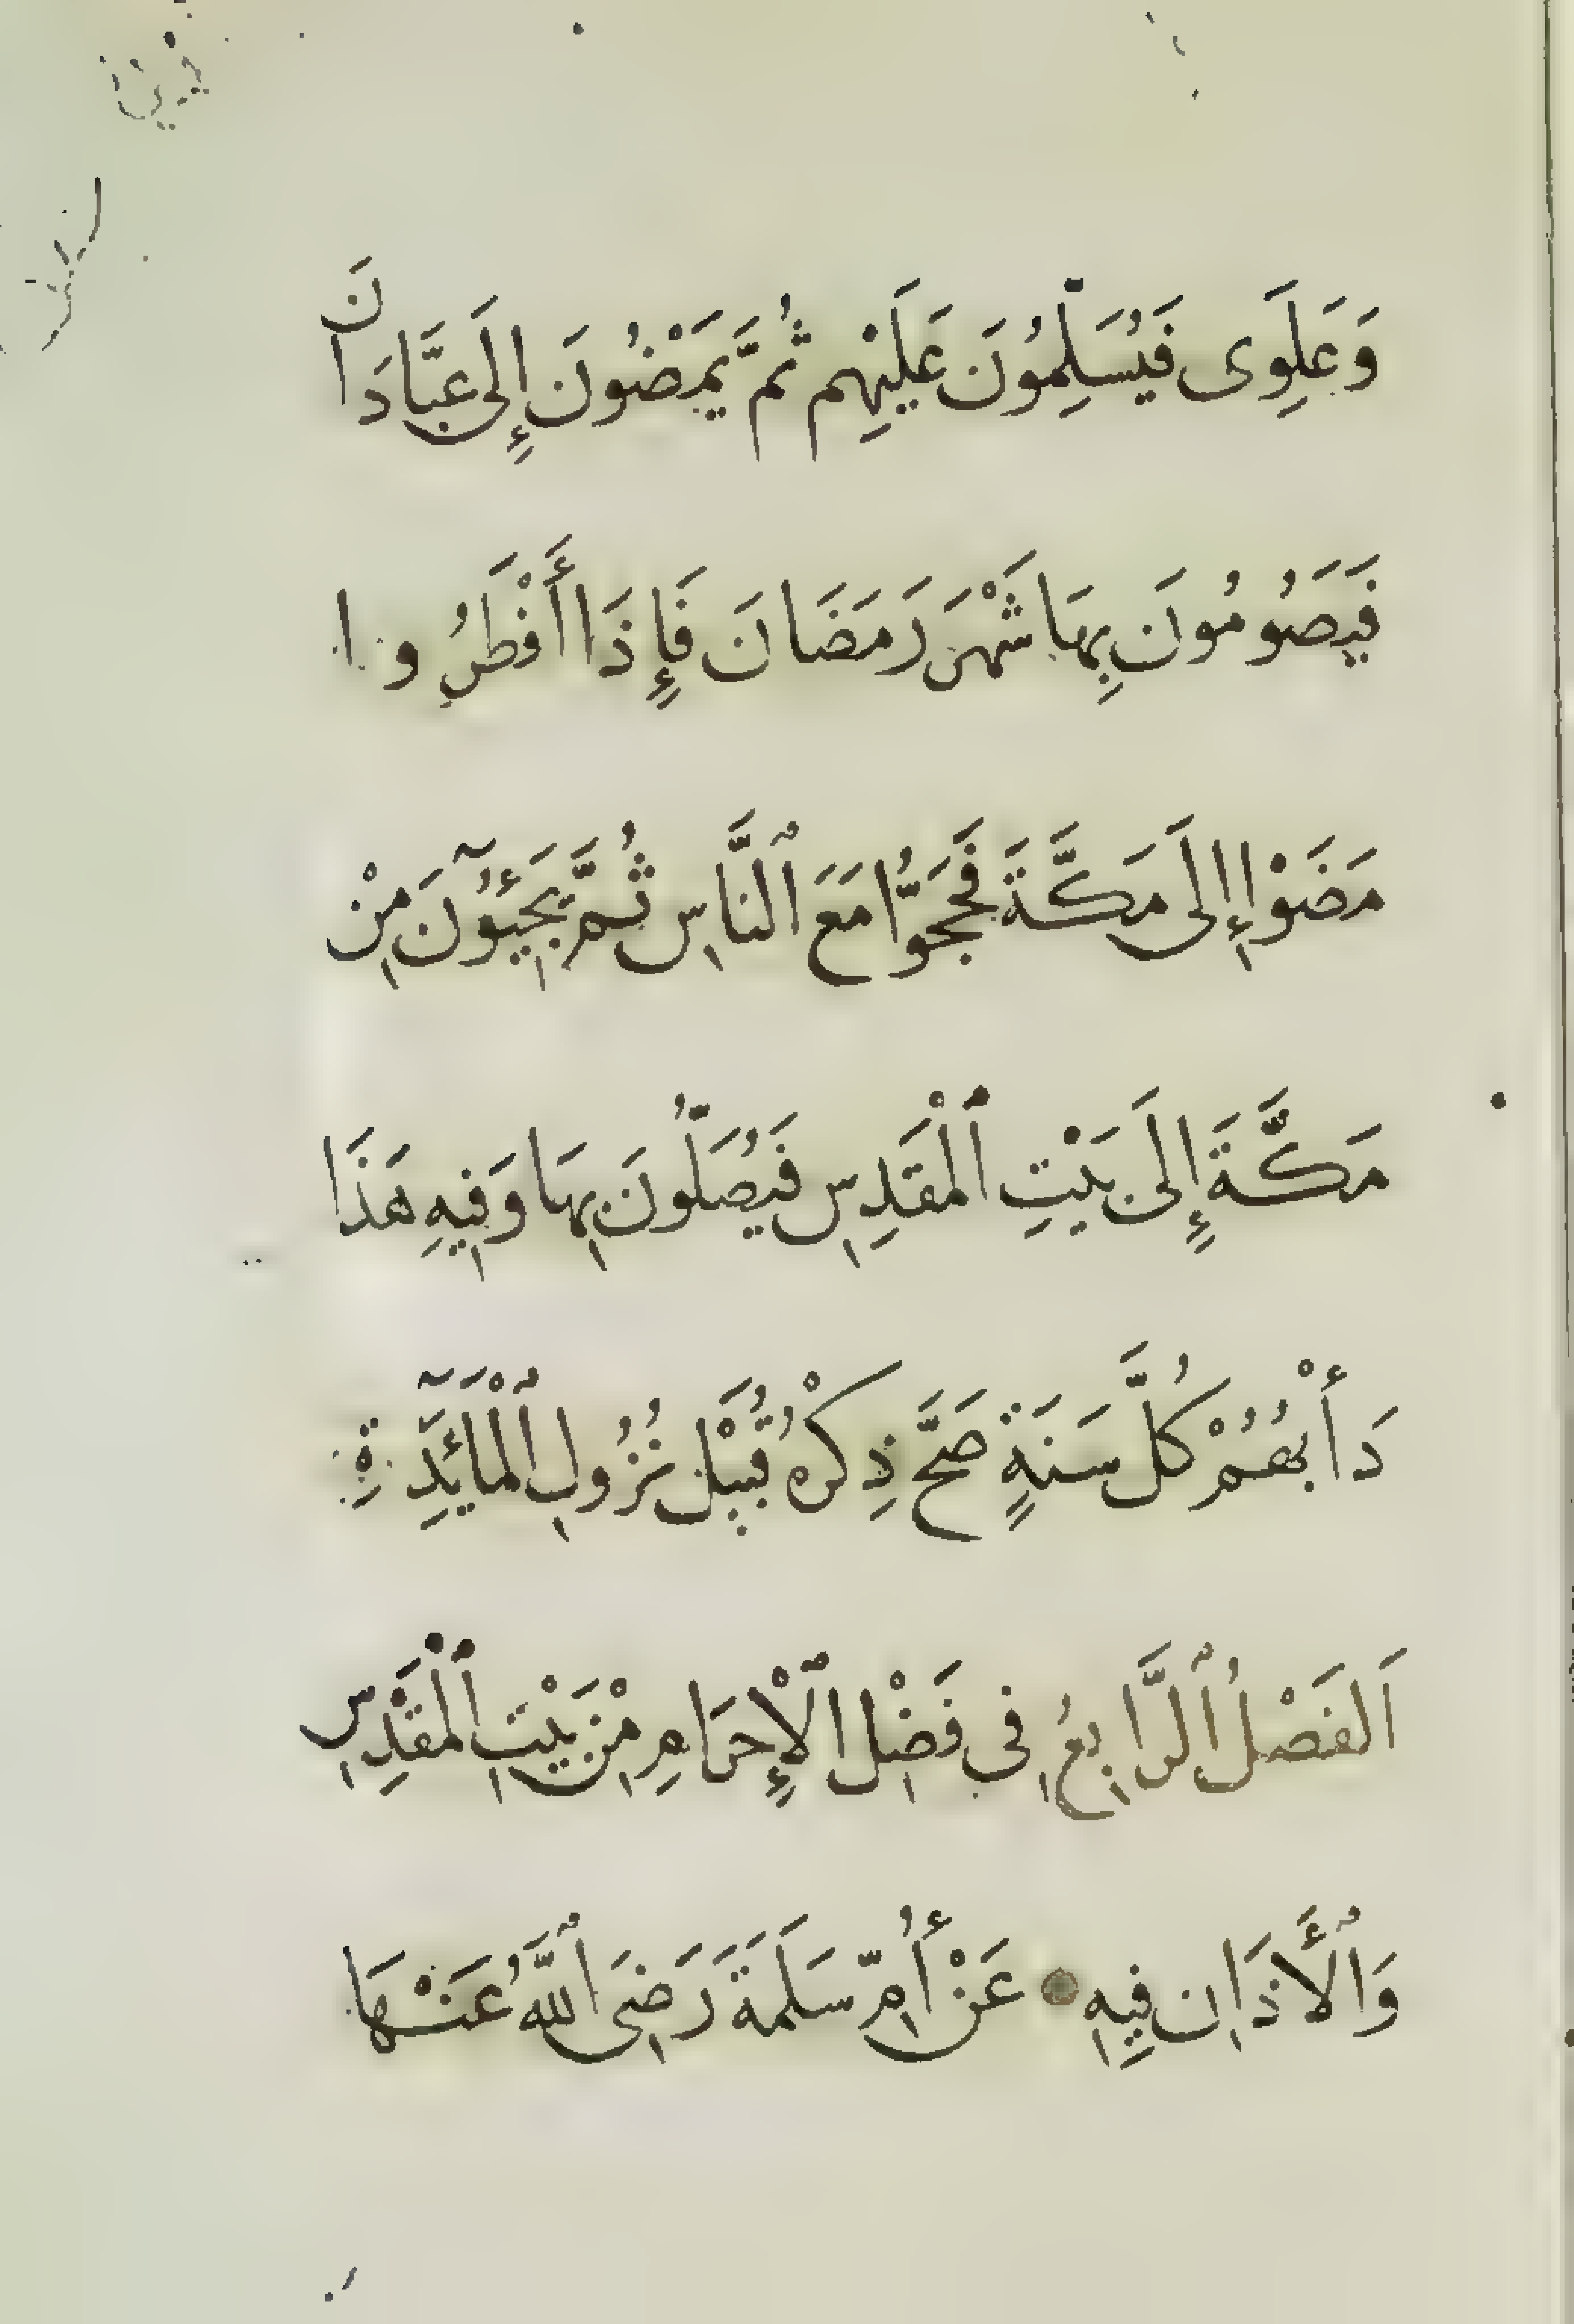 وَعَلِوَى فَيُسَلِّمُونَ عَلَيْهِم ثُمَّ يَمْضُونَ إِلَى عَبَّادَانَ
فَيَصُومُونَ بِهَا شَهْرَ رَمَضَانَ فَإِذَا أَفْطَرُوا
مَضَوْا إِلَى مَكَّةَ فَحَجُّوا مَعَ ٱلنَّاسِ ثُمَّ يَجِيئُونَ مِنْ
مَكَّةَ إِلَى بَيْتِ ٱلْمَقْدِسِ فَيُصَلُّونَ بِهَا وَفِيهِ هَذَا
دَأْبُهُمْ كُلَّ سَنَةٍ صَحَّ ذِكْرُهُ قُبَيْلَ نُزُولِ ٱلْمَائِدَةِ
اَلفَصْلُ ٱلرَّابِعُ فِي فَضْلِ ٱلْإِحْرَامِ مِنْ بَيْتِ ٱلْمَقْدِسِ
وَٱلْأَذَانِ فِيهِ عَنْ أُمِّ سَلَمَةَ رَضِىَ ٱللَّهُ عَنْهَا